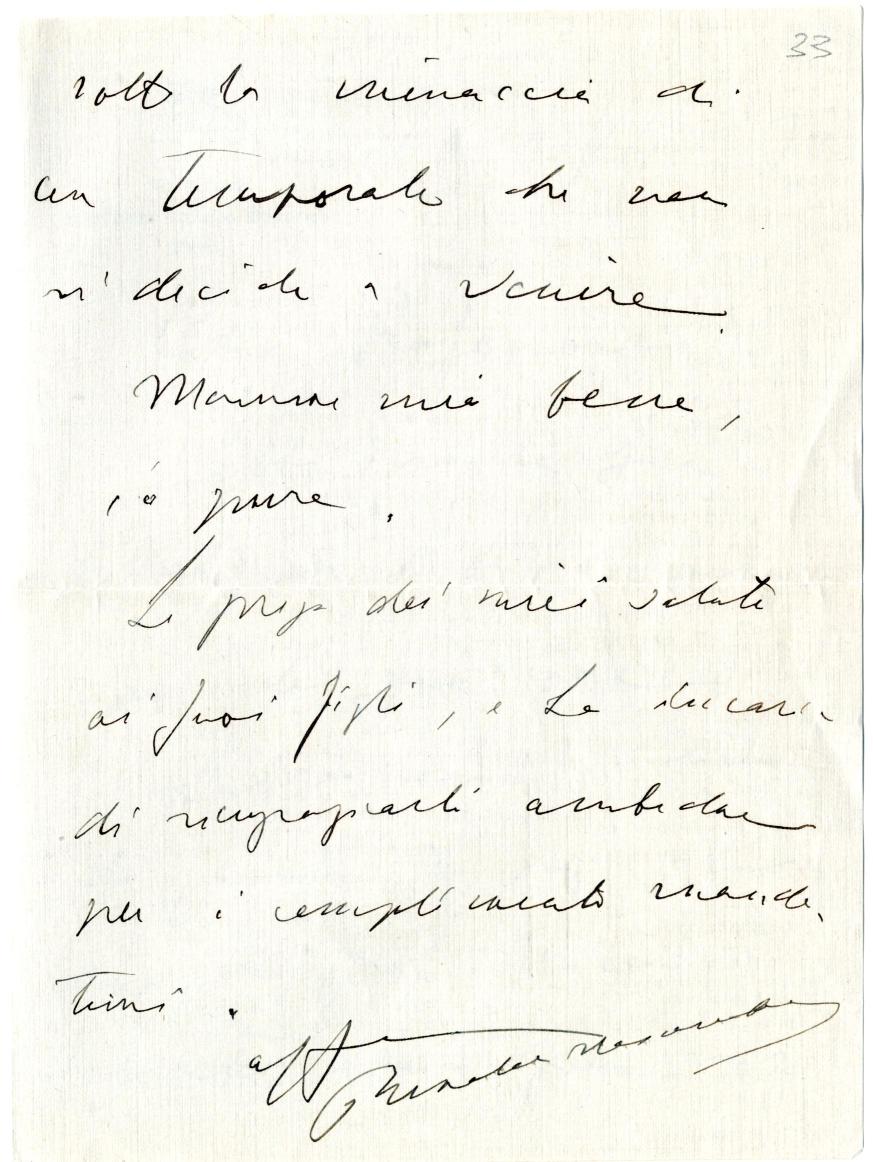 33
sotto la minaccia di
un temporale che non
si decide a venire.
Mamma mia bene,
io pure.
La prego dei miei saluti
ai suoi figli, e La incari-
di ringraziarli ambedue
per i complimenti manda-
timi.
aff